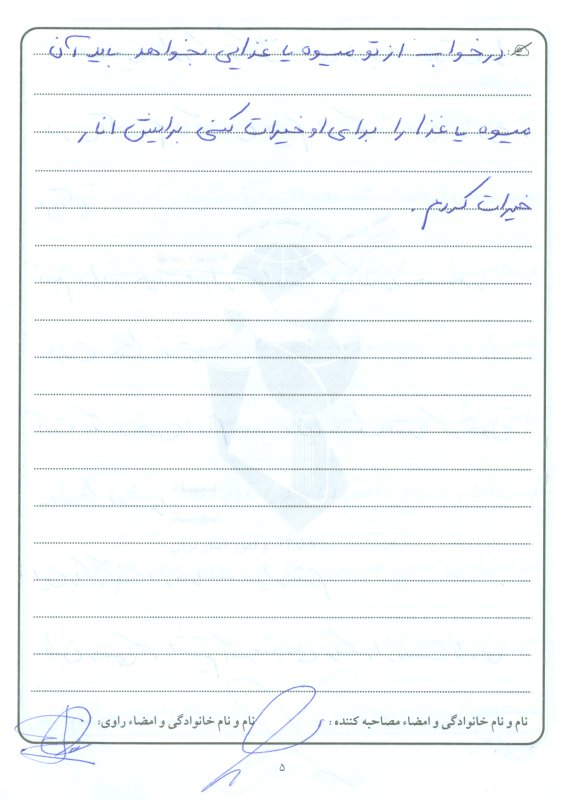 در خواب از تو میوه یا غذایی بخواهد باید آن
میوه یا غذا را برای او خیرات کنی برایش انار
خیرات کردم.
نام و نام خانوادگی و امضاء مصاحبه کننده :
نام و نام خانوادگی و امضاء راوی:
۵